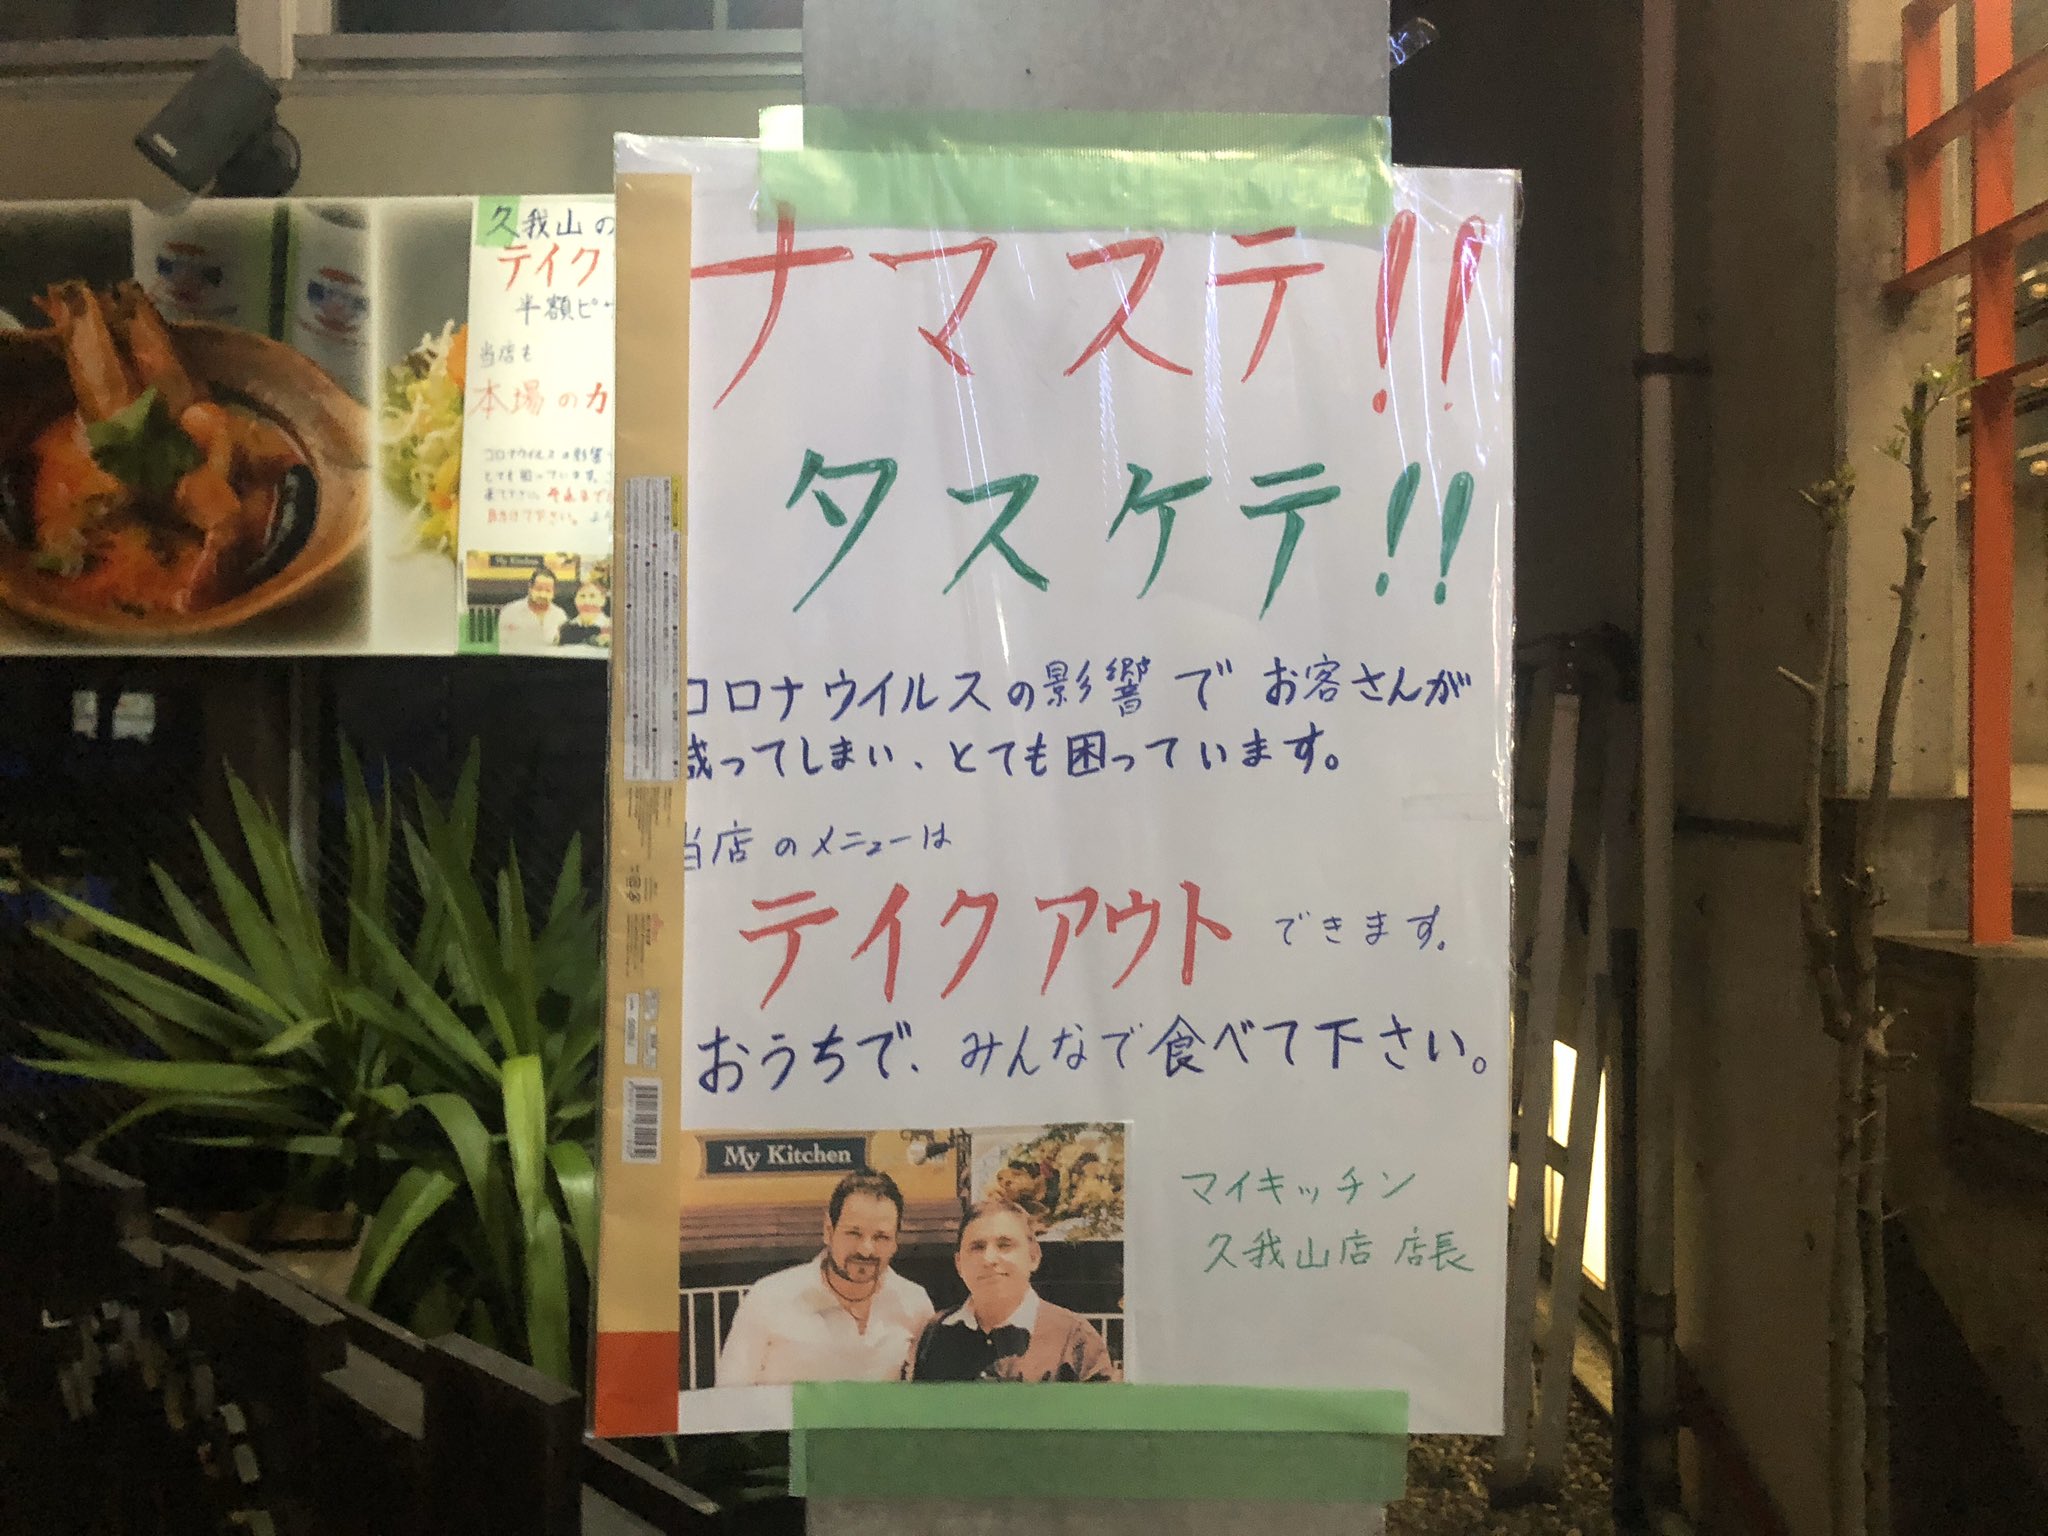 久我山の
テイク
半額ピ
当店も
本場のカ
コロナウイルスの影響
とても困っています。
助けて下さい。
My Kitchen
ナマステ!!
タスケテ!!
コロナウイルスの影響でお客さんが
減ってしまい、とても困っています。
当店のメニューは
テイクアウトできます。
おうちで、みんなで食べて下さい。
My Kitchen
マイキッチン
久我山店 店長